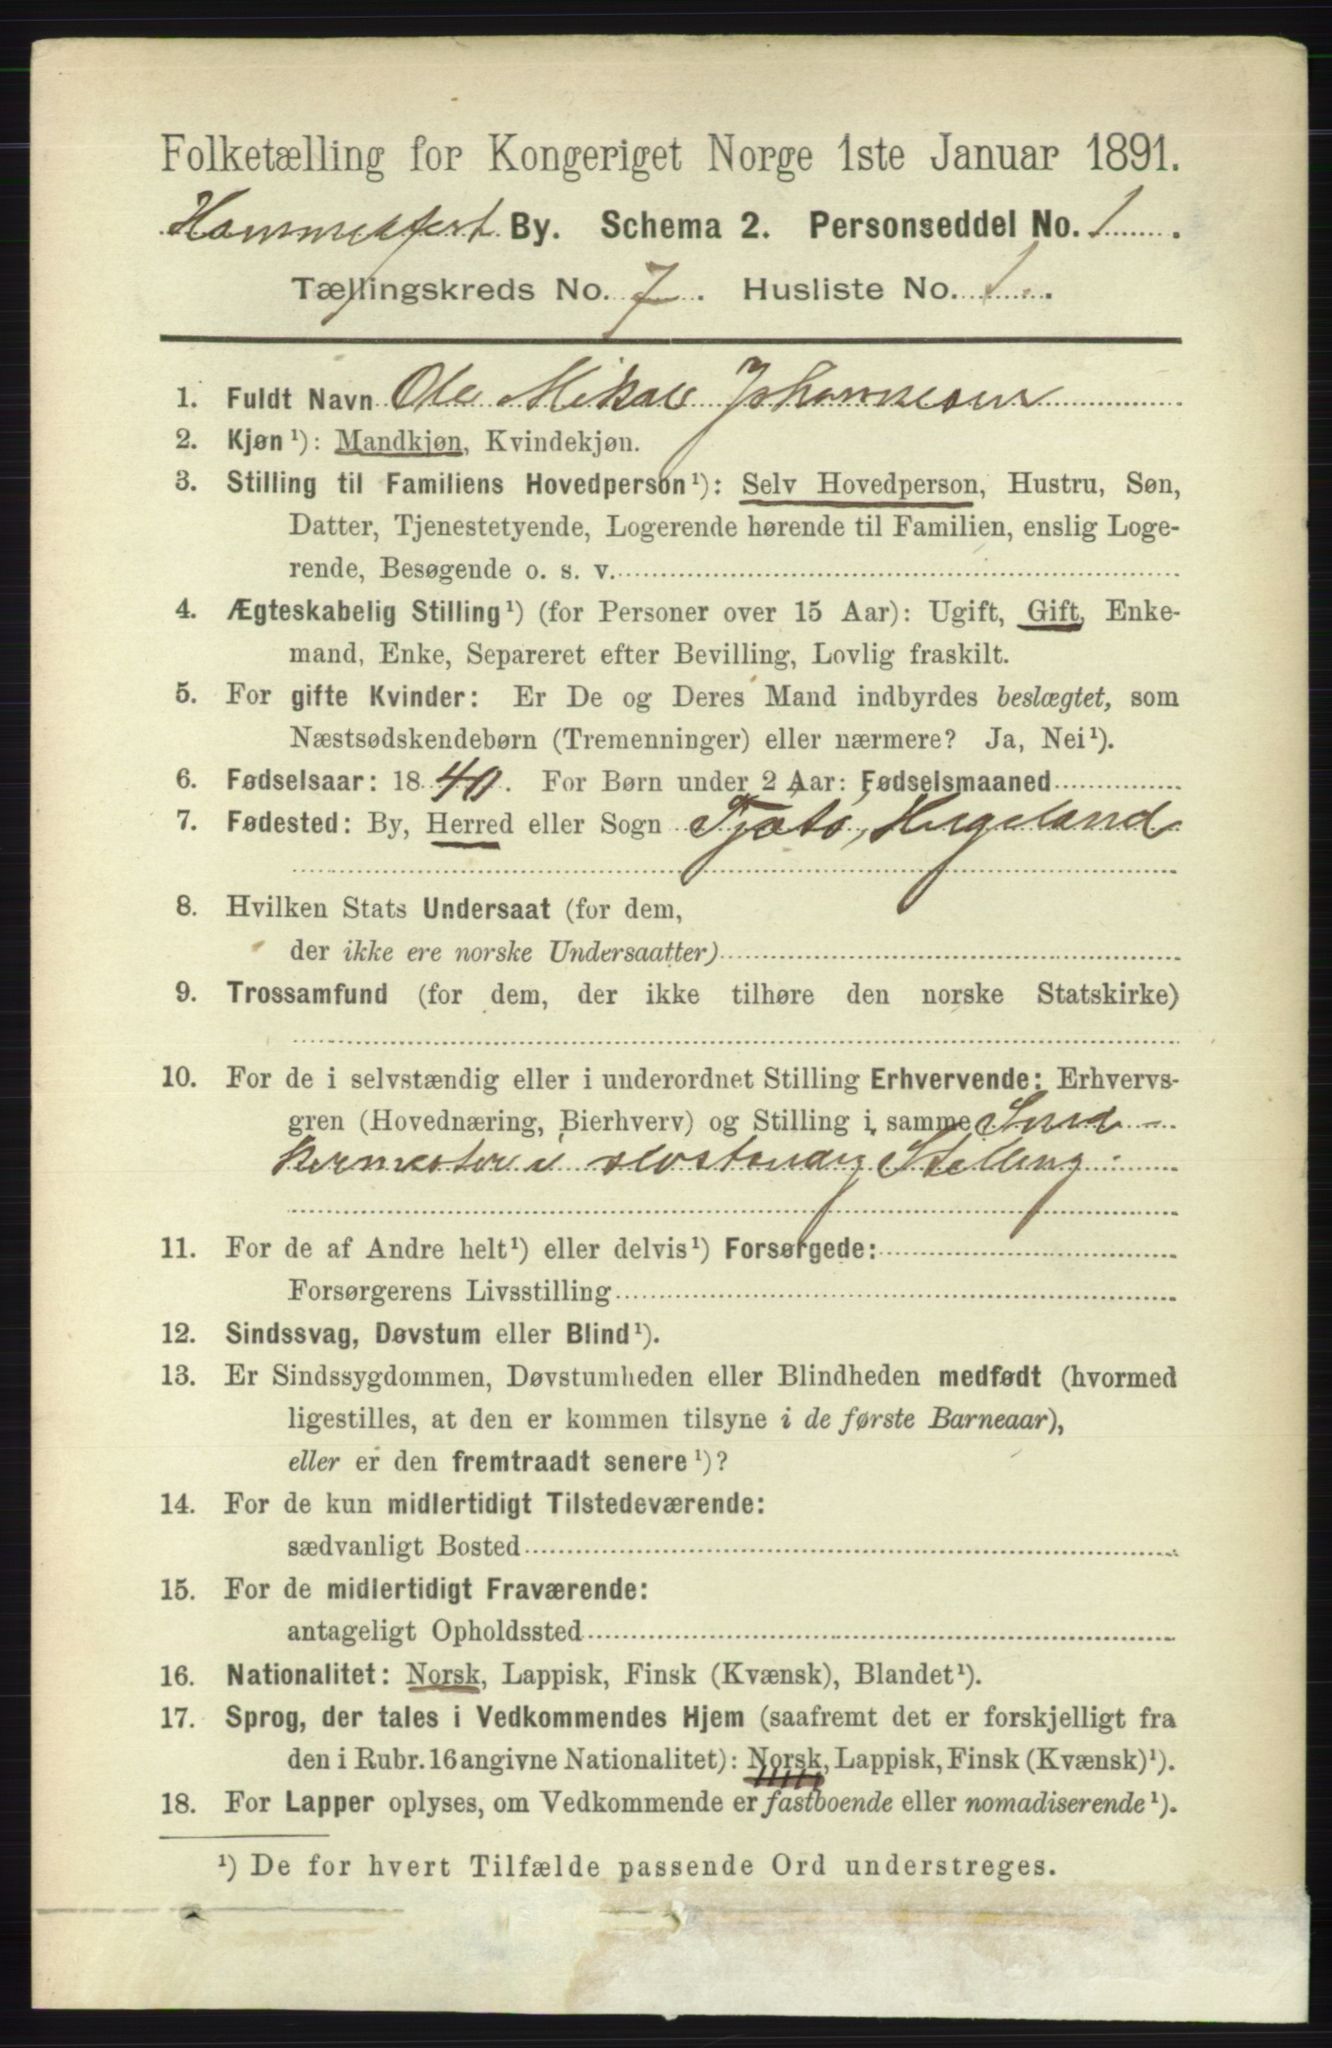 Folketælling for Kongeriget Norge 1ste Januar 1891.
Hammerfest By. Schema 2. Personseddel No. 1.
Tællingskreds No. 7. Husliste No. 1.
1. Fuldt Navn Ole Mikal Johannesen
2. Kjøn¹): Mandkjøn, Kvindekjøn.
3. Stilling til Familiens Hovedperson¹): Selv Hovedperson, Hustru, Søn,
Datter, Tjenestetyende, Logerende hørende til Familien, enslig Loge-
rende, Besøgende o. s. v.
4. Ægteskabelig Stilling¹) (for Personer over 15 Aar): Ugift, Gift, Enke-
mand, Enke, Separeret efter Bevilling, Lovlig fraskilt.
5. For gifte Kvinder: Er De og Deres Mand indbyrdes beslægtet, som
Næstsødskendebørn (Tremenninger) eller nærmere? Ja, Nei¹).
6. Fødselsaar: 1840. For Børn under 2 Aar: Fødselsmaaned
7. Fødested: By, Herred eller Sogn Tjøtø, Hegeland
8. Hvilken Stats Undersaat (for dem,
der ikke ere norske Undersaatter)
9. Trossamfund (for dem, der ikke tilhøre den norske Statskirke)
10. For de i selvstændig eller i underordnet Stilling Erhvervende: Erhvervs-
gren (Hovednæring, Bierhverv) og Stilling i samme Sned-
kermester i selvstændig Stilling.
11. For de af Andre helt¹) eller delvis¹) Forsørgede:
Forsørgerens Livsstilling
12. Sindssvag, Døvstum eller Blind¹).
13. Er Sindssygdommen, Døvstumheden eller Blindheden medfødt (hvormed
ligestilles, at den er kommen tilsyne i de første Barneaar),
eller er den fremtraadt senere¹)?
14. For de kun midlertidigt Tilstedeværende:
sædvanligt Bosted
15. For de midlertidigt Fraværende:
antageligt Opholdssted
16. Nationalitet: Norsk, Lappisk, Finsk (Kvænsk), Blandet¹).
17. Sprog, der tales i Vedkommendes Hjem (saafremt det er forskjelligt fra
den i Rubr. 16 angivne Nationalitet): Norsk, Lappisk, Finsk (Kvænsk)¹).
18. For Lapper oplyses, om Vedkommende er fastboende eller nomadiserende¹).
¹) De for hvert Tilfælde passende Ord understreges.